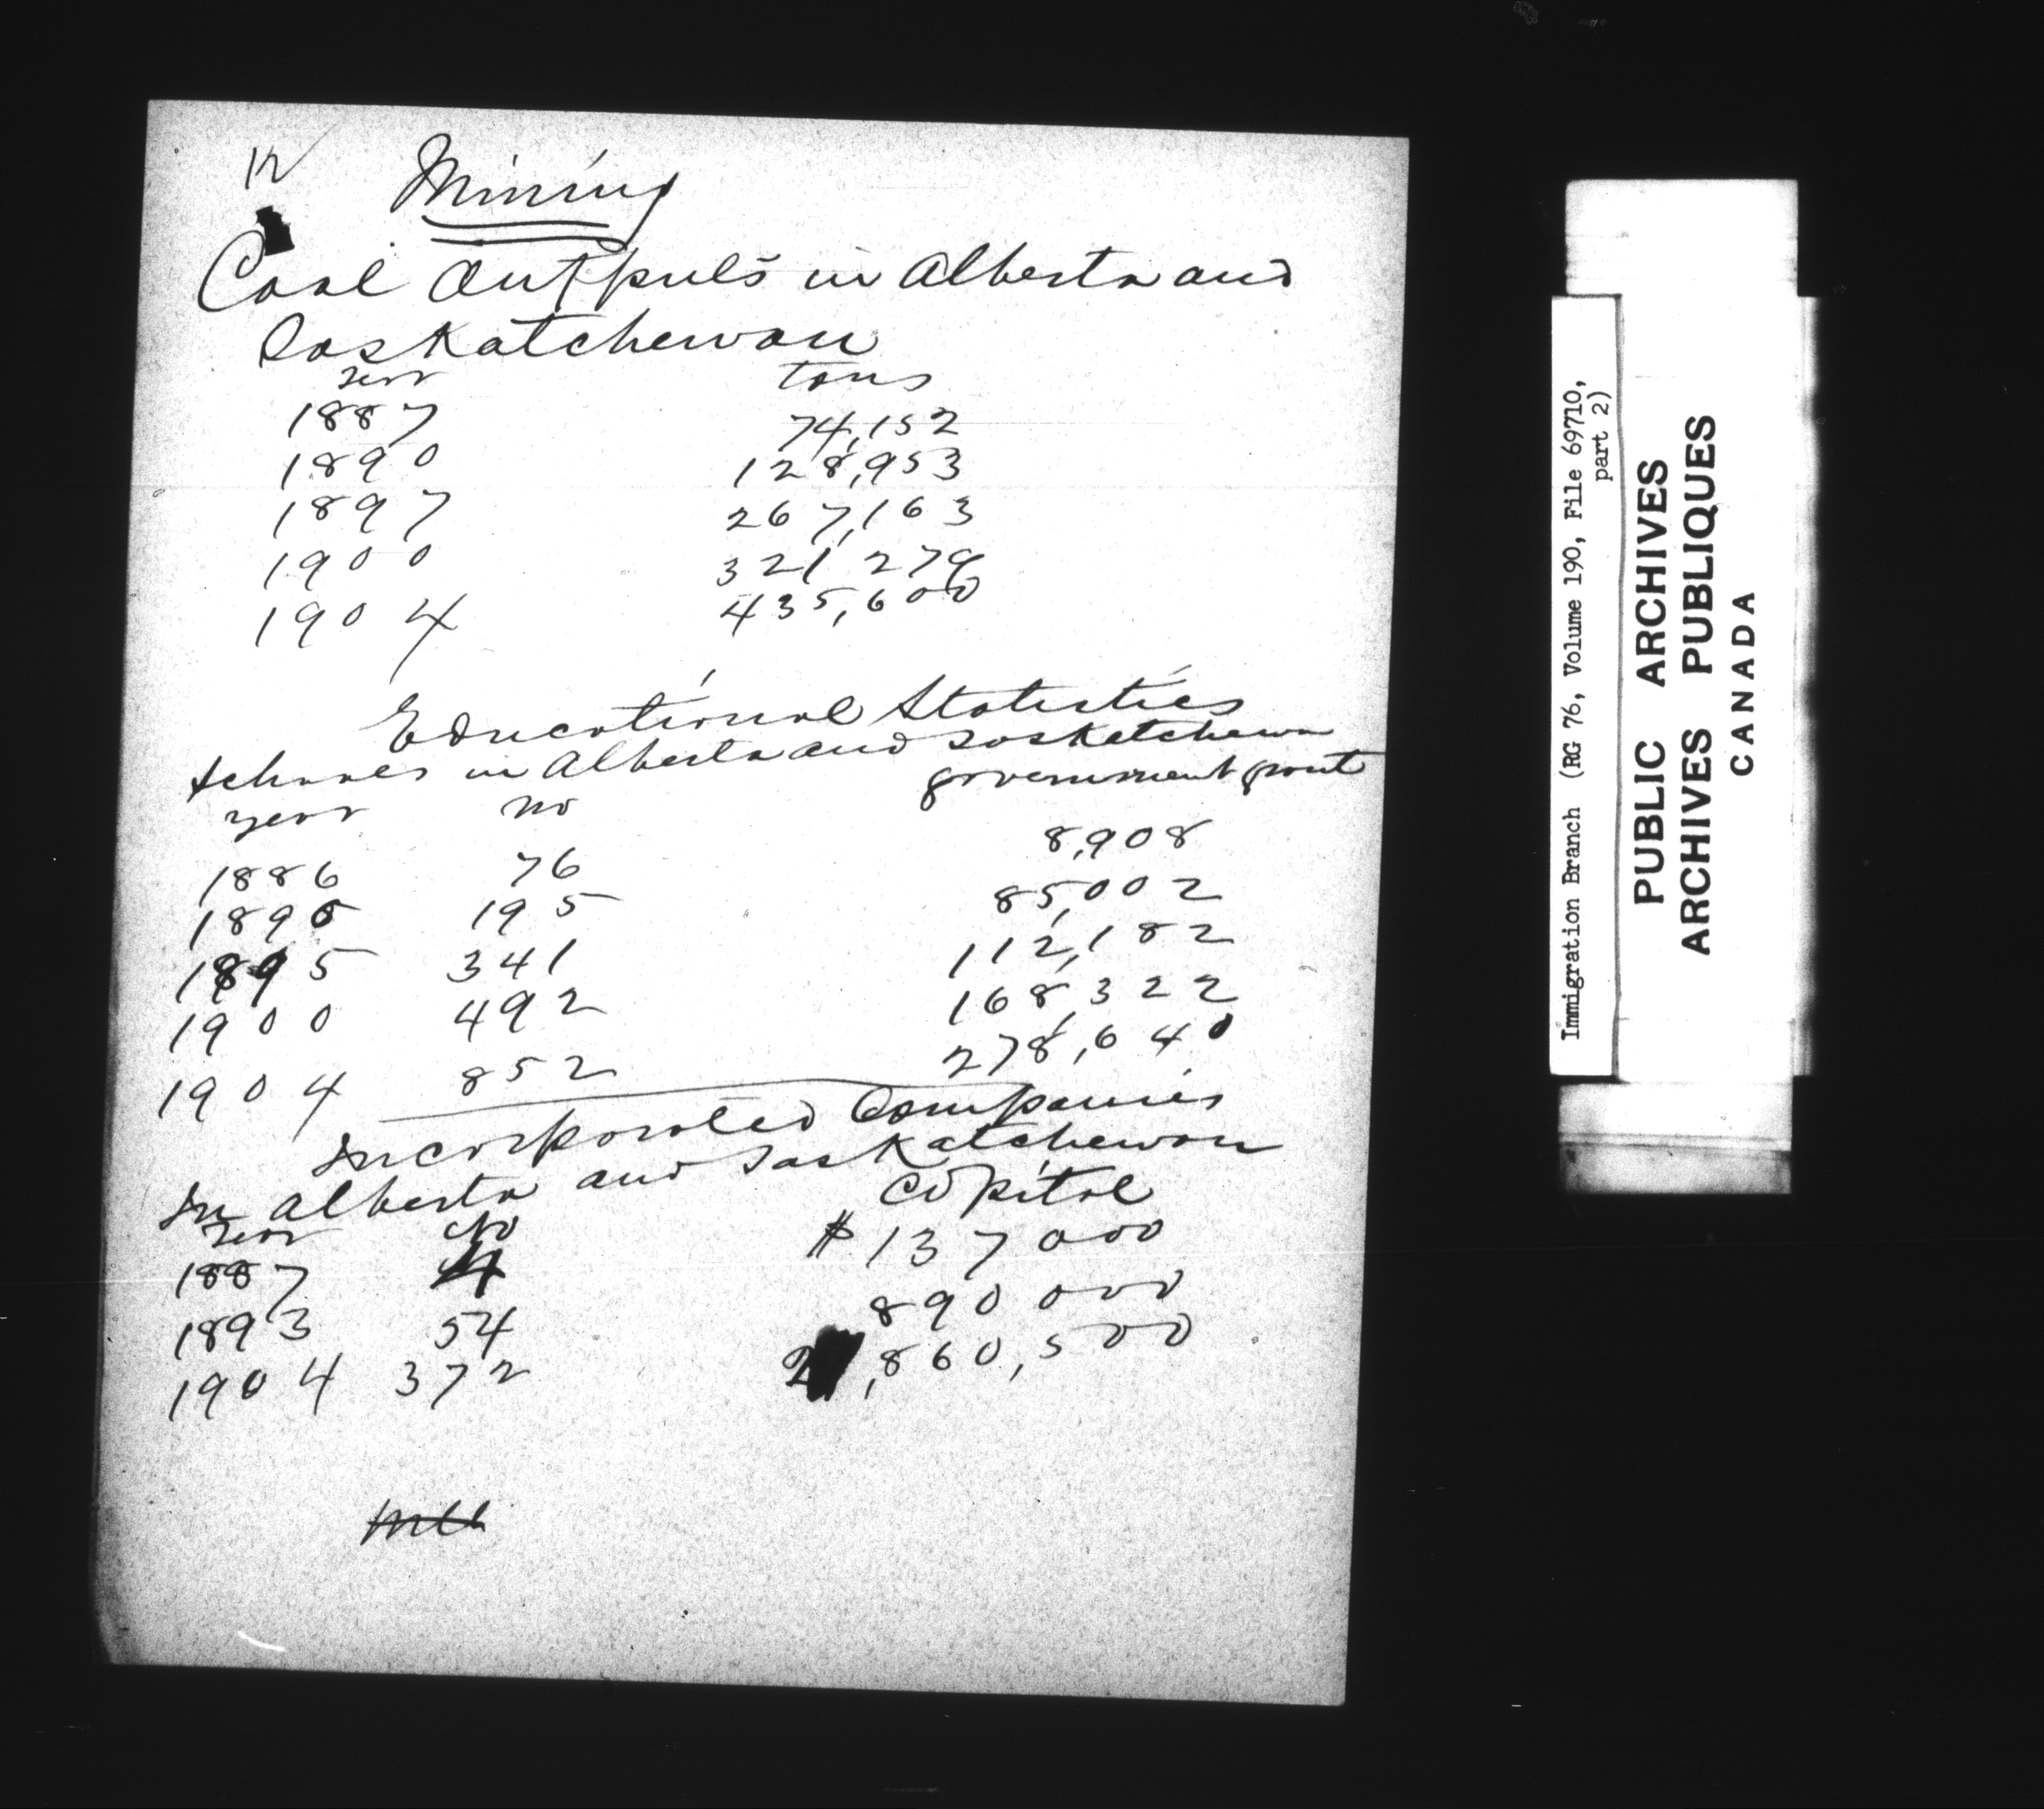 12
Mining
Coal Outputs in Alberta and
Saskatchewan
year tons
1887 74,152
1890 128,953
1897 267,163
1900 321 279
1904 435,600
Educational Statistics
Schools in Alberta and Saskatchewan
year no government grant
1886 76 8,908
1890 195 85,002
1895 341 112,182
1900 492 168,322
1904 852 278,640
Incorporated Companies
In Alberta and Saskatchewan
year No Capital
1887 4 $137000
1893 54 890 000
1904 372 2,860,500
Immigration Branch (RG 76, Volume 190, File 69710,
part 2)
PUBLIC ARCHIVES
ARCHIVES PUBLIQUES
CANADA